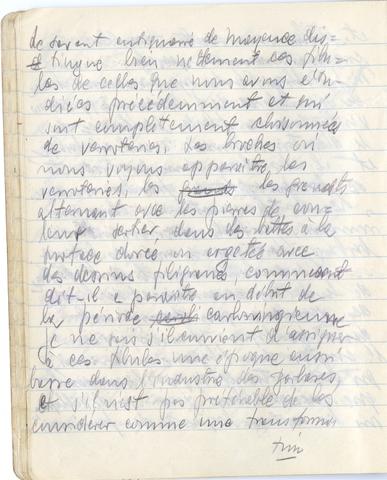 de savant antiquaire de Mayence dis=
tingue bien nettement ces fibu=
les de celles que nous avons étu=
diées précédemment et qui
sont complètement cloisonnées
de verroteries. Les broches où
nous voyons apparaître les
verroteries, les les grenats
alternant avec les pierres de cou=
leur sertier dans des battes à la
surface dorée ou argetée avec
des dessins filigranés, commencent
dit-il a paraître au début de
la période carlovingienne
je ne sais s'il convient d'assigner
à ces fibules une époque aussi
basse dans l'industrie des barbares,
et s'il n'est pas préférable de les
considérer comme une transforma
tion